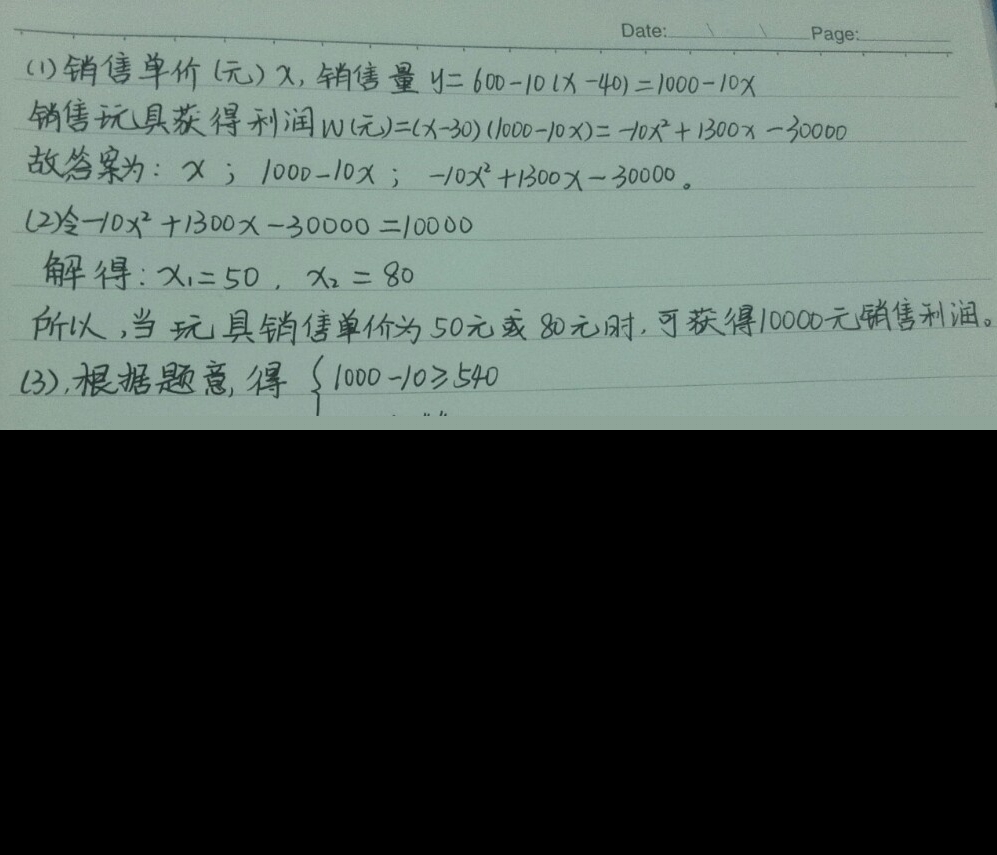 Date: Page:
(1)销售单价(元)x,销售量y=600-10(x-40)=1000-10x
销售玩具获得利润W(元)=(x-30)(1000-10x)=-10x²+1300x-30000
故答案为:x;1000-10x;-10x²+1300x-30000。
(2)令-10x²+1300x-30000=10000
解得:x₁=50,x₂=80
所以,当玩具销售单价为50元或80元时,可获得10000元销售利润。
(3).根据题意,得{1000-10≥540